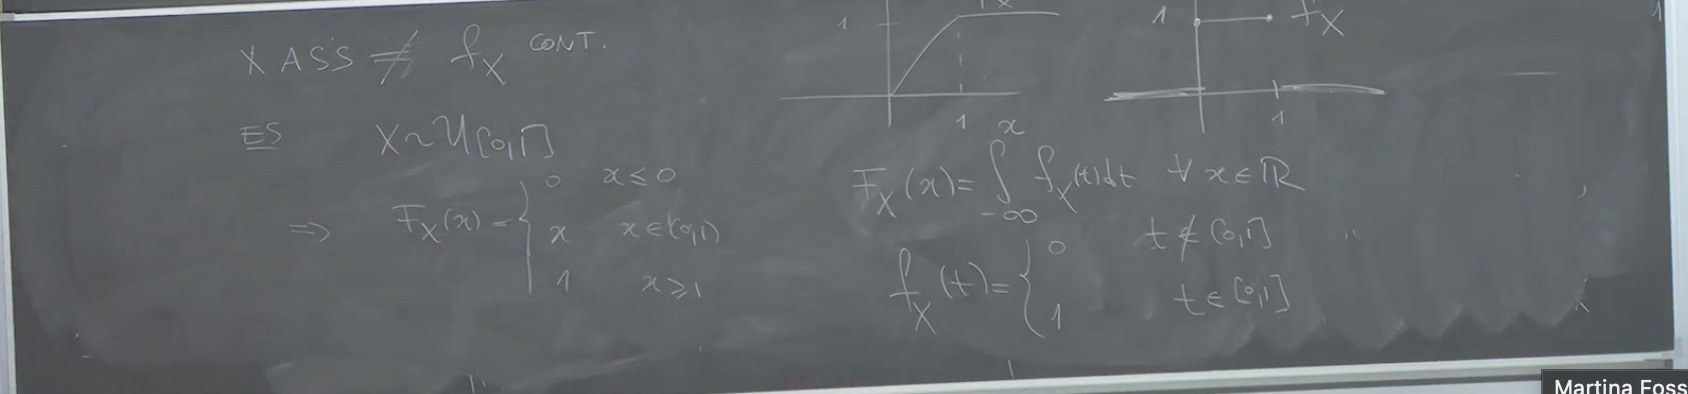 X ASS ⇏ f_X CONT.
ES X ~ U[0,1]
⇒ F_X(x) = { 0 x ≤ 0
x x ∈ (0,1)
1 x ≥ 1
1
1
1 f_X
1
F_X(x) = ∫_{-∞}^{x} f_X(t)dt ∀ x ∈ ℝ
f_X(t) = { 0 t ∉ [0,1]
1 t ∈ [0,1]
Martina Foss